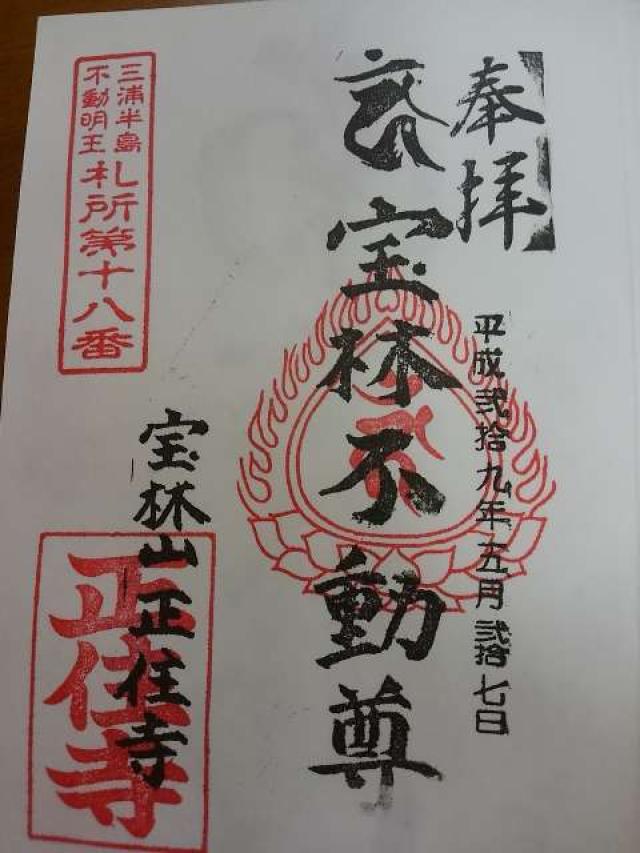 奉拝
平成弐拾九年五月弐拾七日
宝林不動尊
宝林山正住寺
正住寺
三浦半島
不動明王
札所第十八番